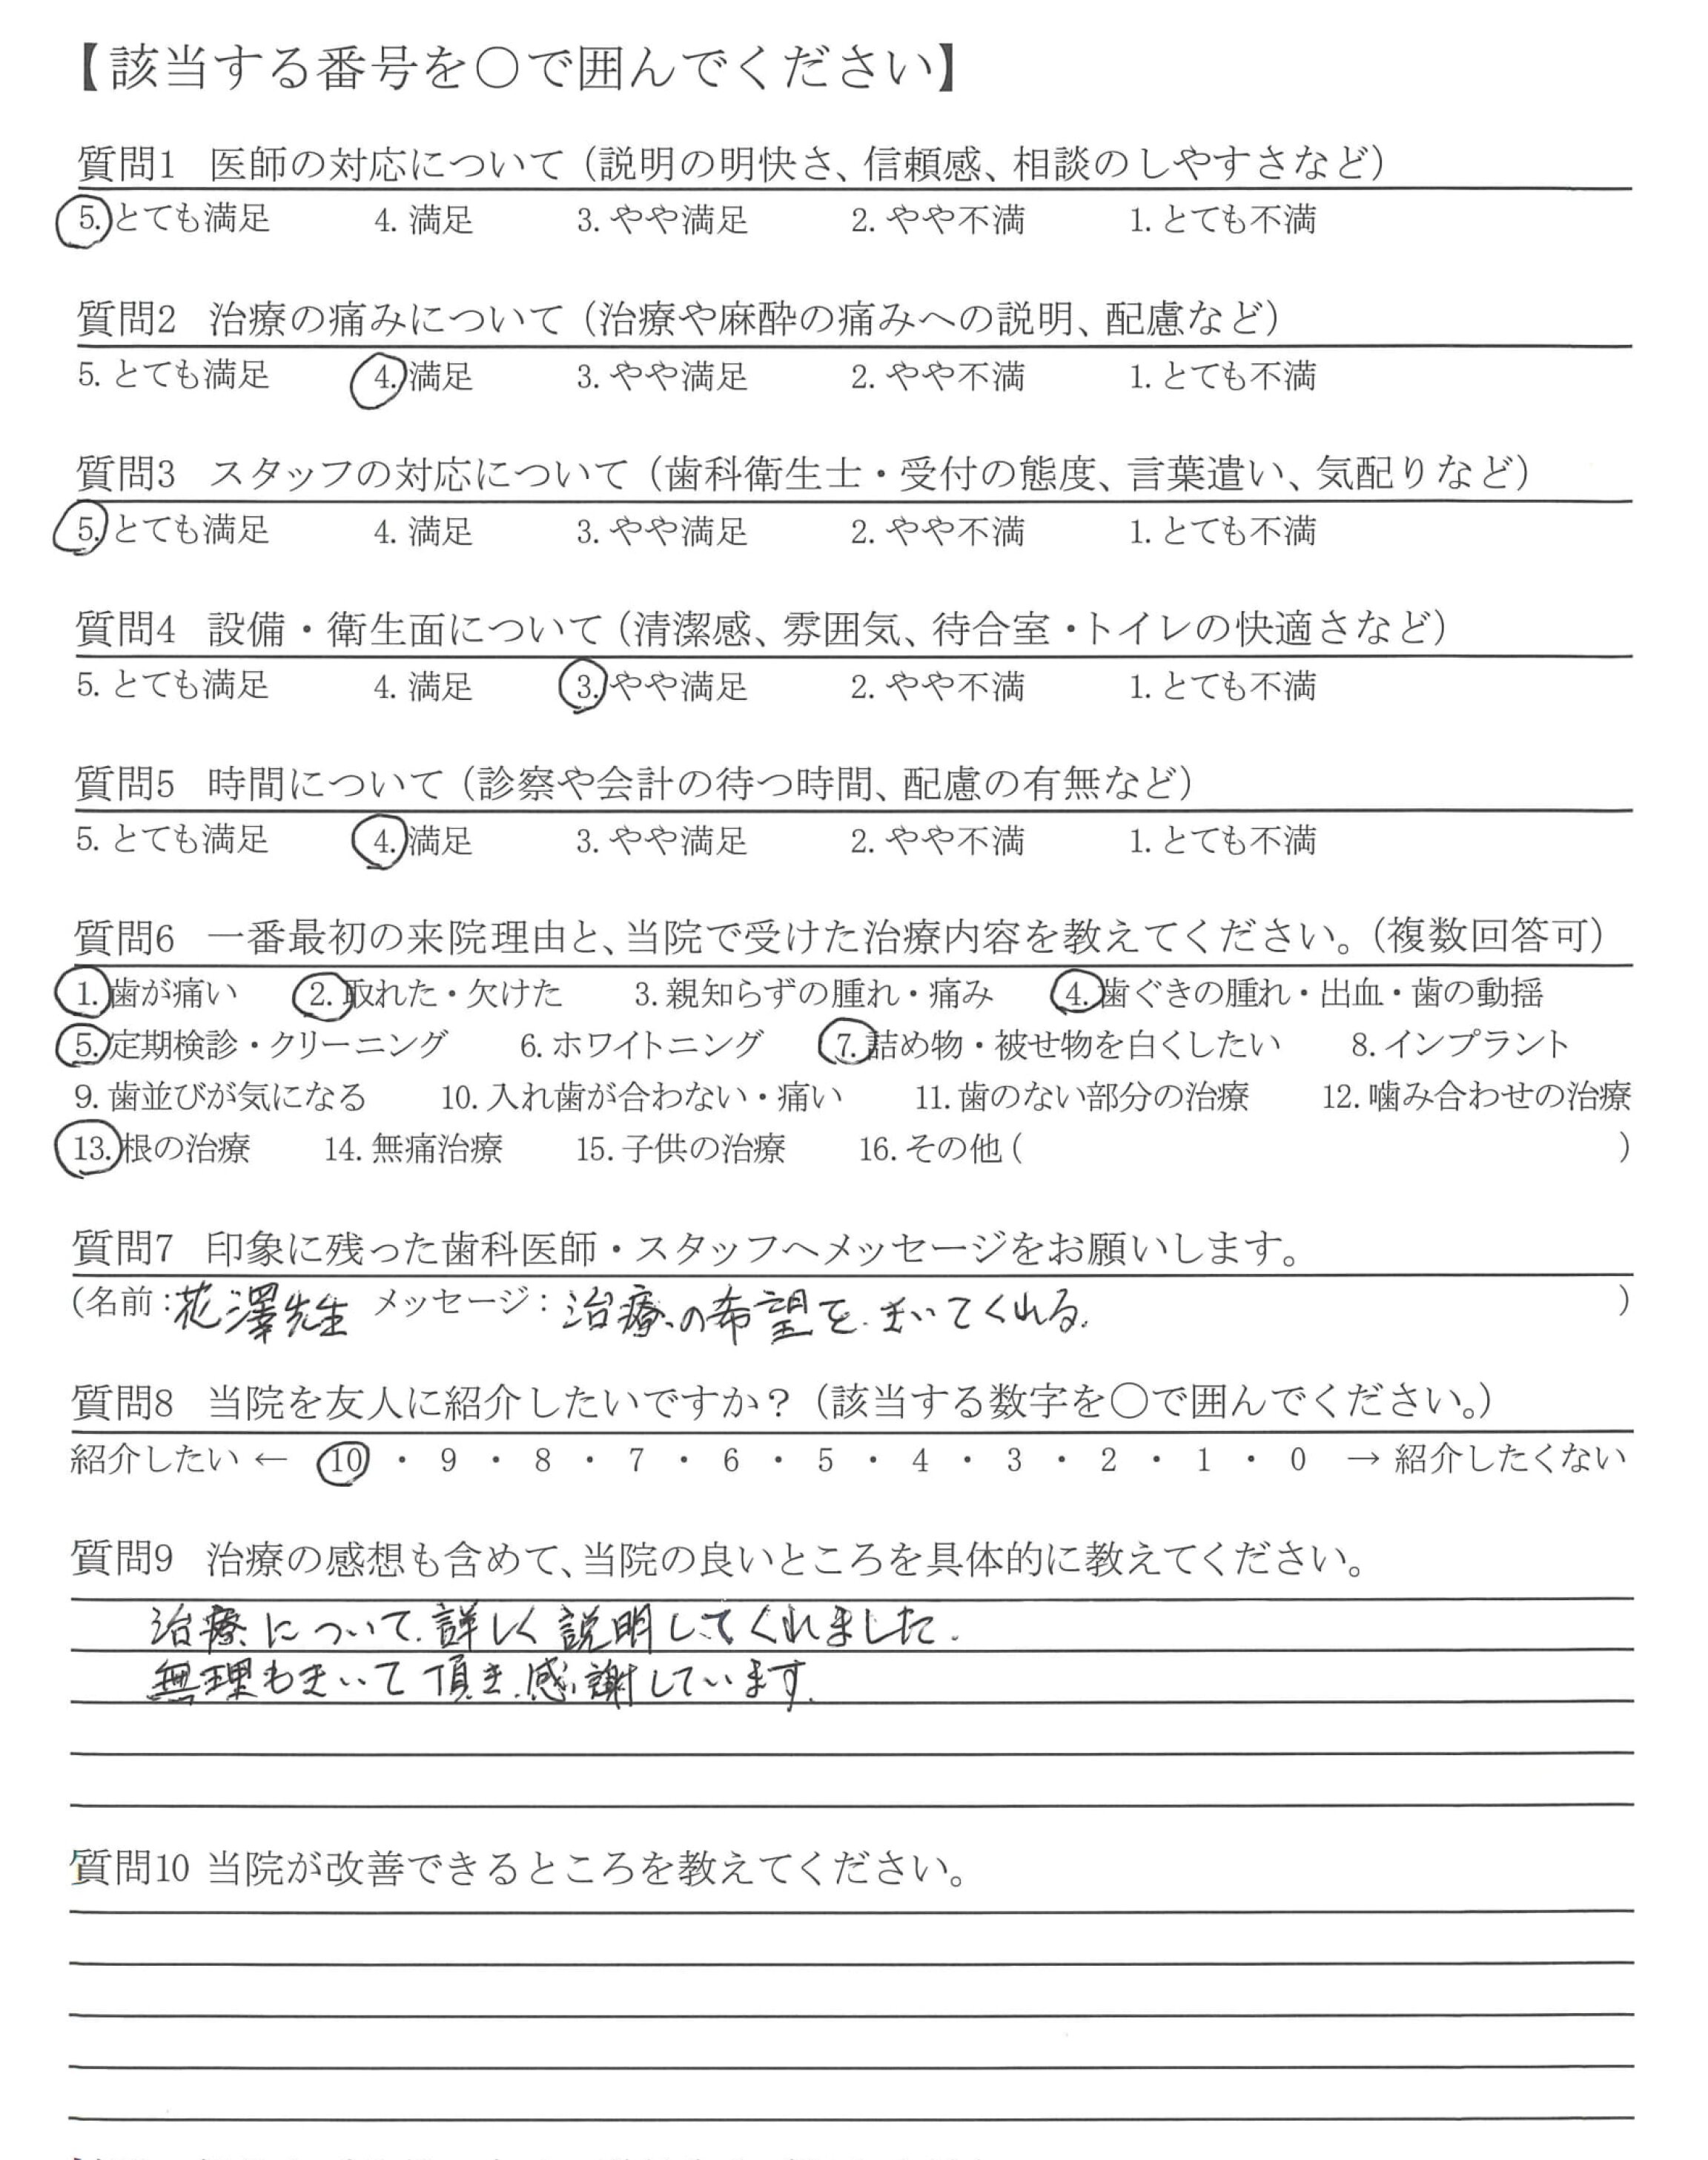 【該当する番号を〇で囲んでください】
質問1 医師の対応について（説明の明快さ、信頼感、相談のしやすさなど）
5. とても満足 4. 満足 3. やや満足 2. やや不満 1. とても不満
質問2 治療の痛みについて（治療や麻酔の痛みへの説明、配慮など）
5. とても満足 4. 満足 3. やや満足 2. やや不満 1. とても不満
質問3 スタッフの対応について（歯科衛生士・受付の態度、言葉遣い、気配りなど）
5. とても満足 4. 満足 3. やや満足 2. やや不満 1. とても不満
質問4 設備・衛生面について（清潔感、雰囲気、待合室・トイレの快適さなど）
5. とても満足 4. 満足 3. やや満足 2. やや不満 1. とても不満
質問5 時間について（診察や会計の待つ時間、配慮の有無など）
5. とても満足 4. 満足 3. やや満足 2. やや不満 1. とても不満
質問6 一番最初の来院理由と、当院で受けた治療内容を教えてください。（複数回答可）
1. 歯が痛い 2. 取れた・欠けた 3. 親知らずの腫れ・痛み 4. 歯ぐきの腫れ・出血・歯の動揺
5. 定期検診・クリーニング 6. ホワイトニング 7. 詰め物・被せ物を白くしたい 8. インプラント
9. 歯並びが気になる 10. 入れ歯が合わない・痛い 11. 歯のない部分の治療 12. 噛み合わせの治療
13. 根の治療 14. 無痛治療 15. 子供の治療 16. その他（ ）
質問7 印象に残った歯科医師・スタッフへメッセージをお願いします。
（名前：花澤先生 メッセージ：治療の希望をきいてくれる。）
質問8 当院を友人に紹介したいですか？（該当する数字を〇で囲んでください。）
紹介したい ← 10 ・ 9 ・ 8 ・ 7 ・ 6 ・ 5 ・ 4 ・ 3 ・ 2 ・ 1 ・ 0 → 紹介したくない
質問9 治療の感想も含めて、当院の良いところを具体的に教えてください。
治療について詳しく説明してくれました。
無理もきいて頂き感謝しています。
質問10 当院が改善できるところを教えてください。